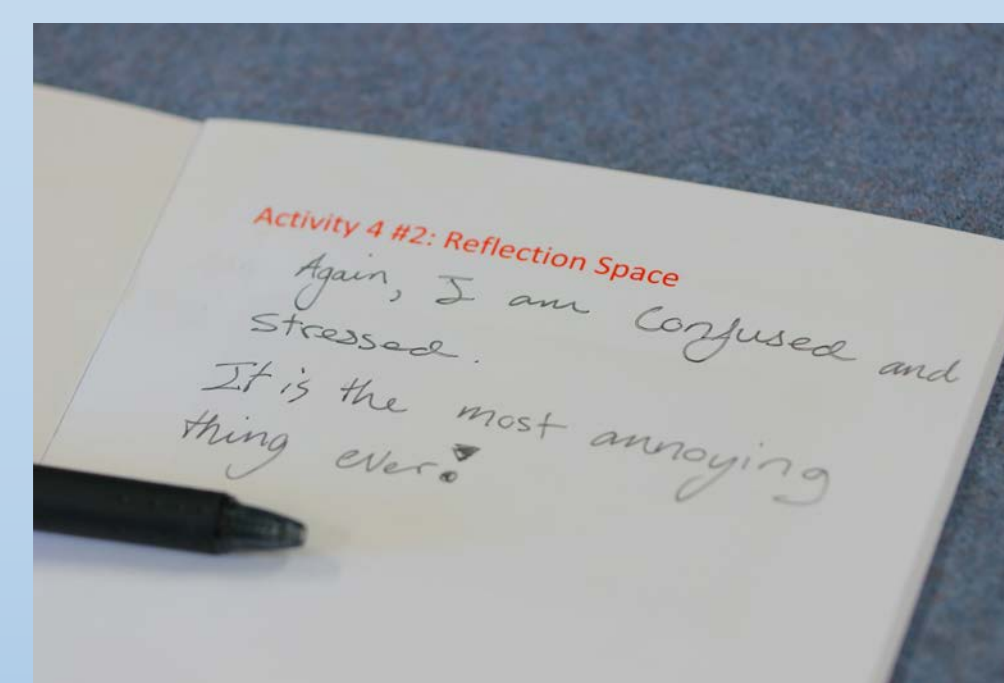 Activity 4 #2: Reflection Space
Again, I am confused and
stressed.
It is the most annoying
thing ever!